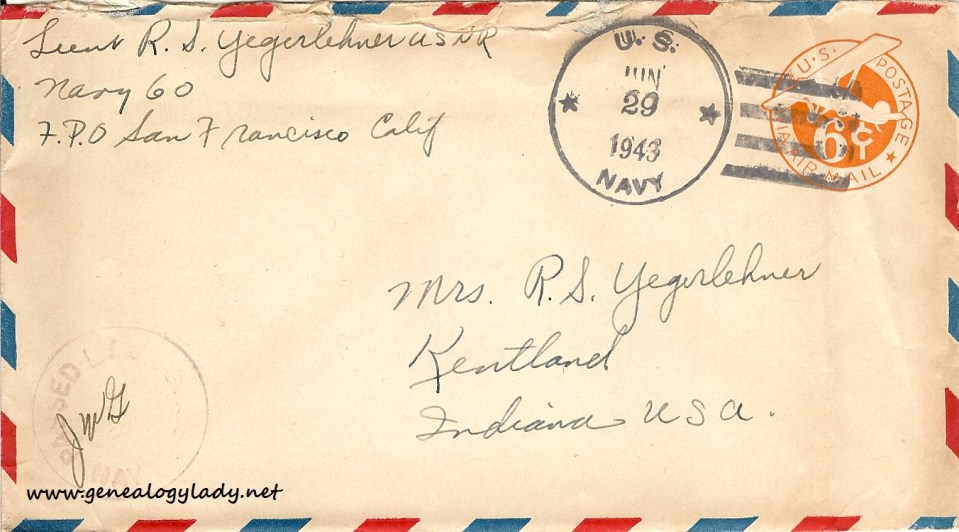 Lieut R. S. Yegerlehner USNR
Navy 60
F.P.O San Francisco Calif
U. S.
JUN
29
1943
NAVY
U.S. POSTAGE
6¢
VIA AIR MAIL
Mrs. R. S. Yegerlehner
Kentland
Indiana USA.
PASSED
JWG
NAVY
www.genealogylady.net